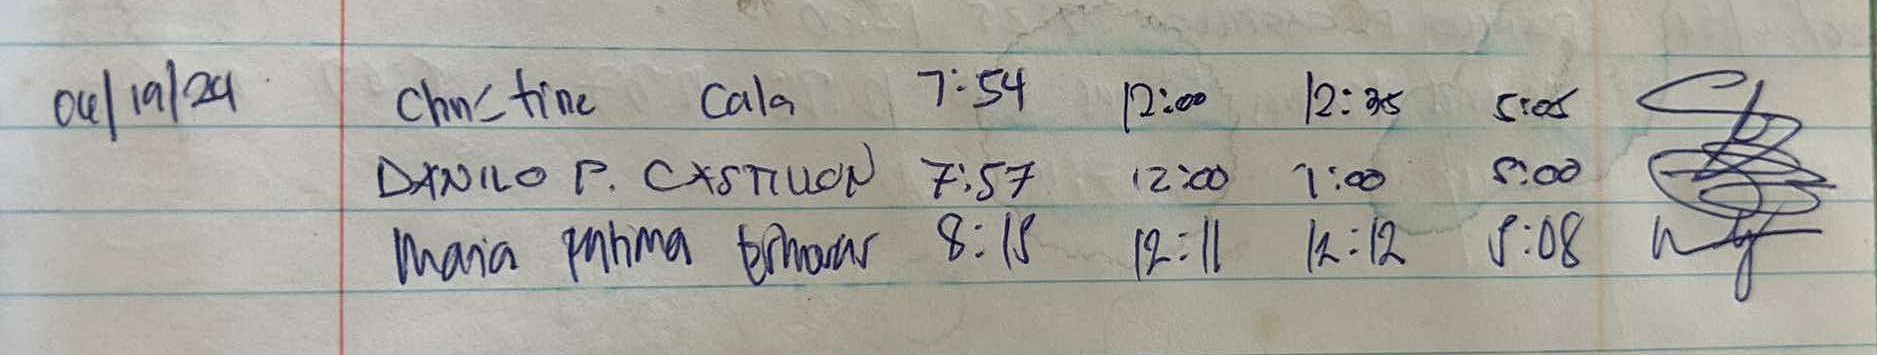 06/19/24 Christine Cala 7:54 12:00 12:35 5:05
DANILO P. CASTILLON 7:57 12:00 1:00 5:00
Maria Fatima 8:15 12:11 12:12 5:08